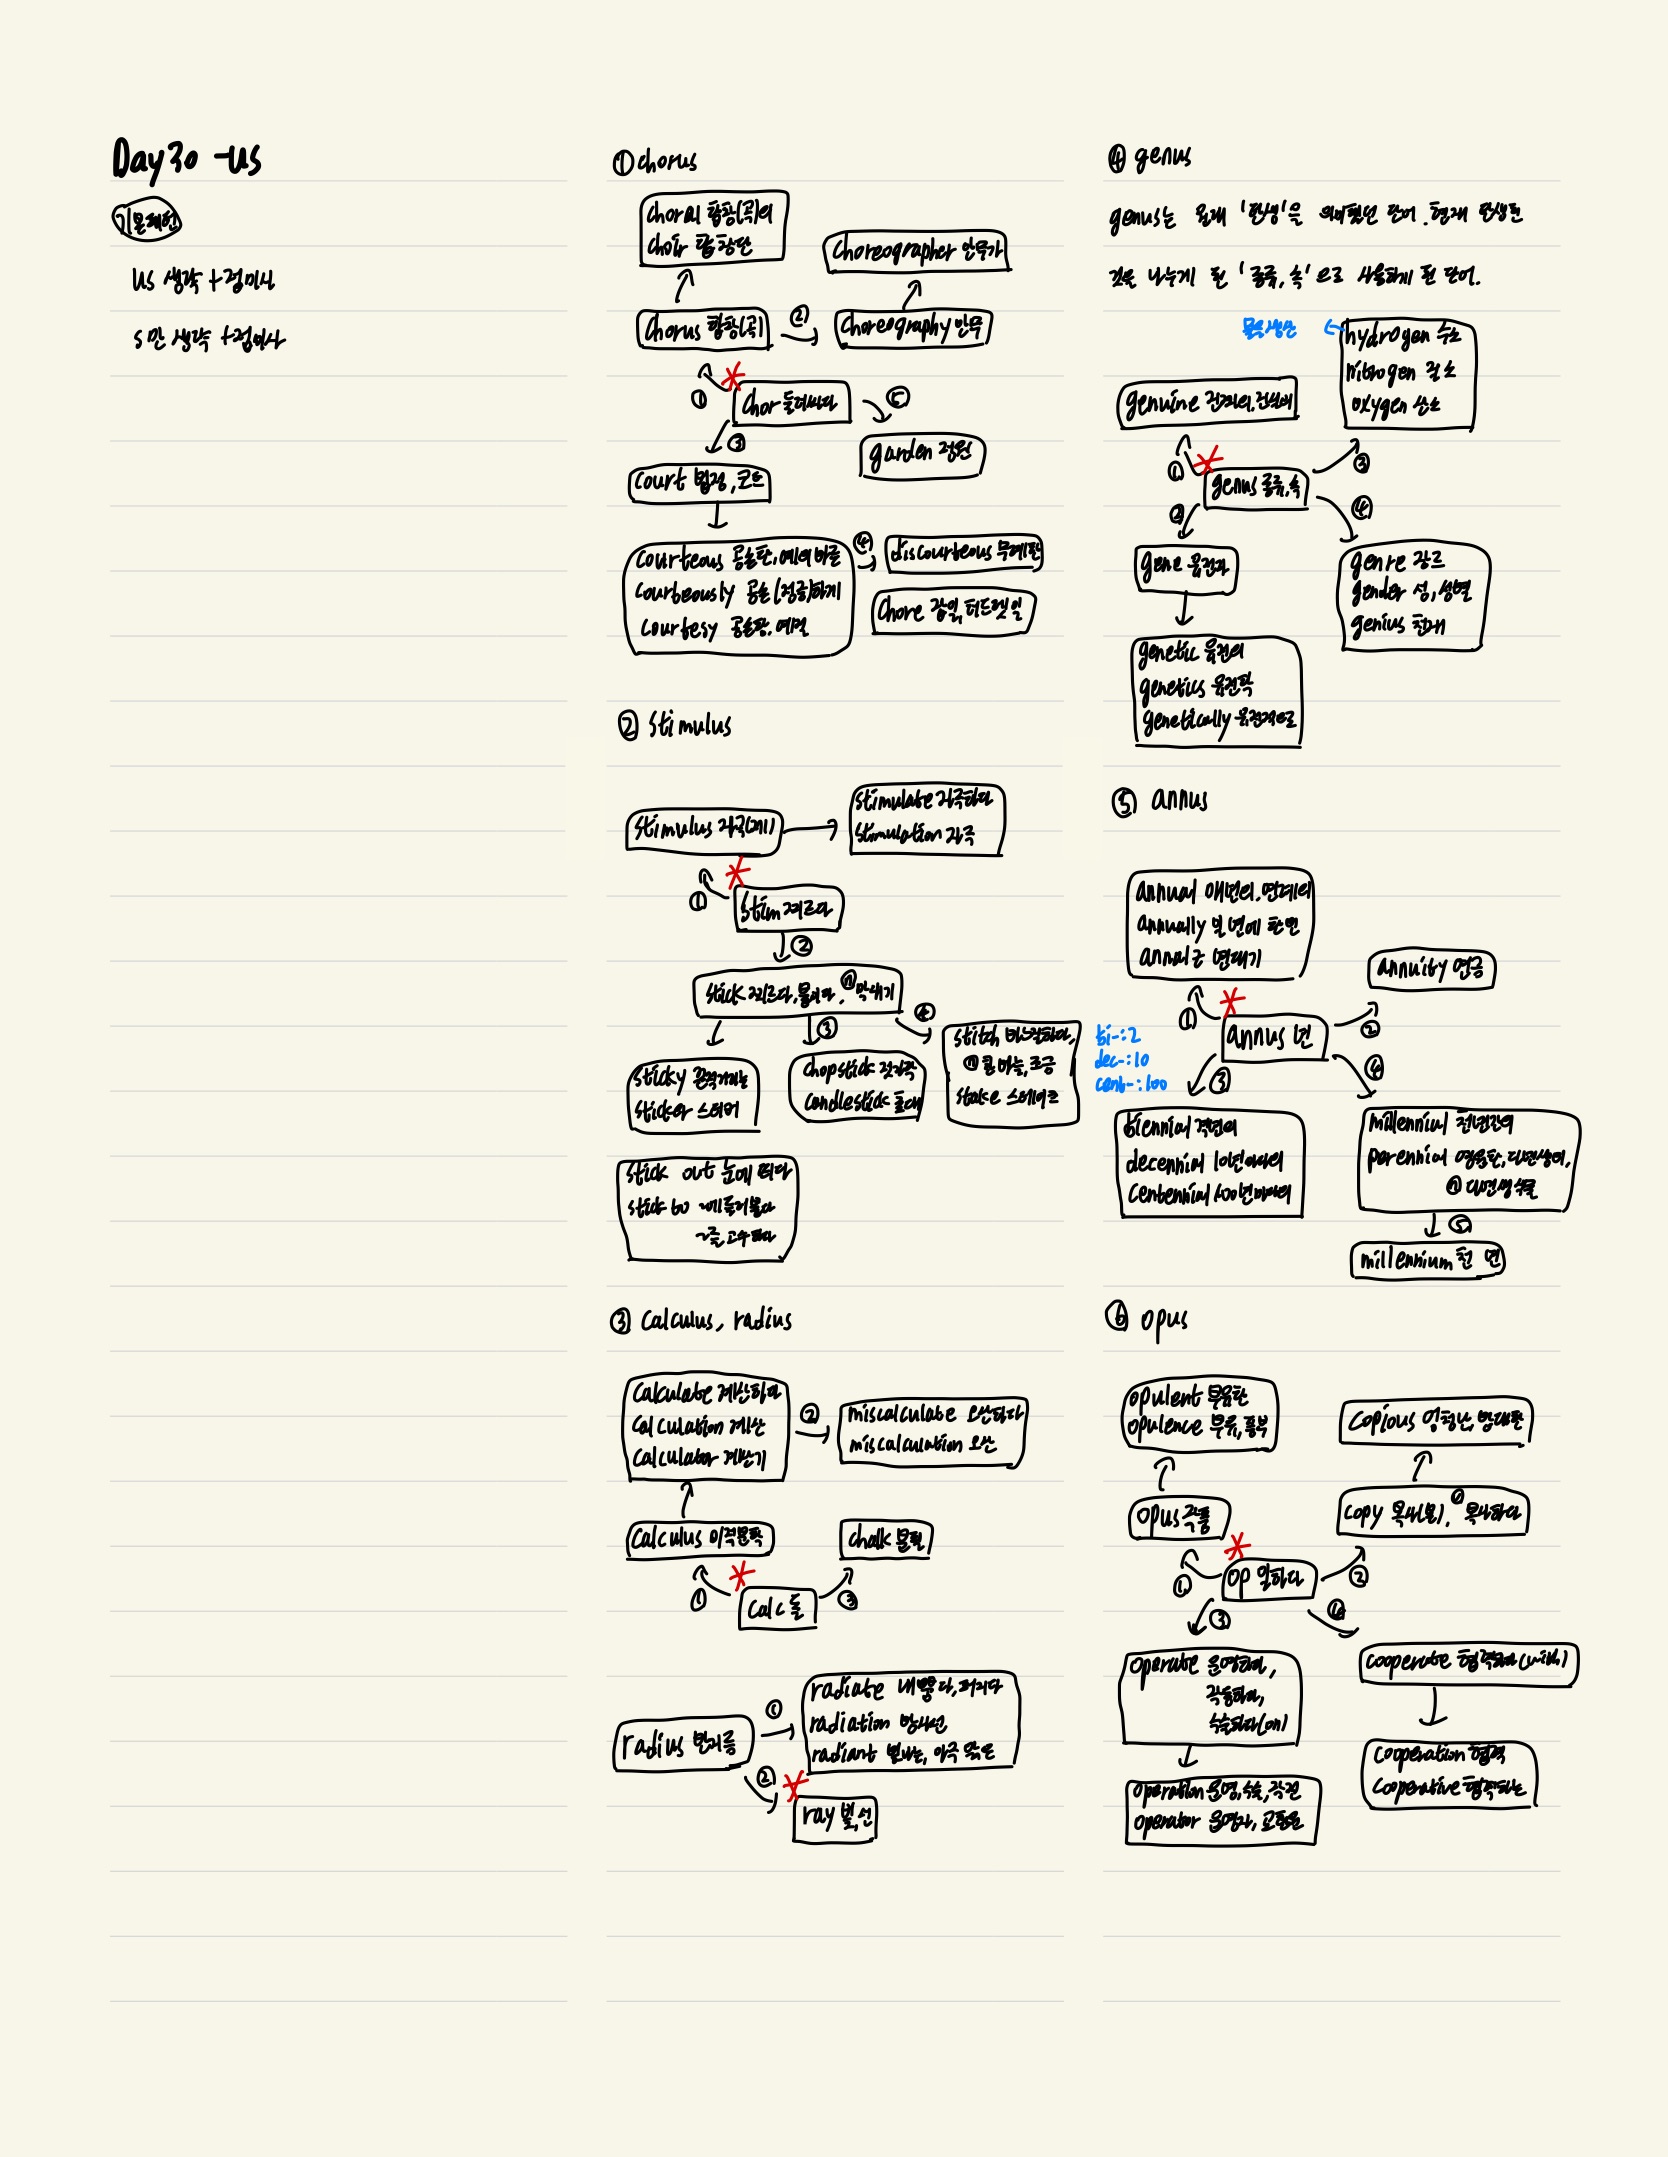 Day 30 -us
기본패턴
us 생략 + 접미사
s만 생략 + 접미사
① chorus
choral 합창(곡)의
choir 합창단
choreographer 안무가
chorus 합창(곡)
②
choreography 안무
①
chor 둘러싸다
⑤
③
garden 정원
court 법정, 코트
courteous 공손한, 예의 바른
courteously 공손(정중)하게
courtesy 공손함, 예절
④
discourteous 무례한
chore 잡일, 허드렛일
② stimulus
stimulus 자극(제)
stimulate 자극하다
stimulation 자극
①
stim 찌르다
②
stick 찌르다, 붙이다, ⓝ막대기
③
④
sticky 끈적거리는
sticker 스티커
chopstick 젓가락
candlestick 촛대
stitch 바느질하다,
ⓝ한 바늘, 조금
stake 스테이크
stick out 눈에 띄다
stick to ~에 들러붙다
~를 고수하다
③ calculus, radius
calculate 계산하다
calculation 계산
calculator 계산기
②
miscalculate 오산하다
miscalculation 오산
calculus 미적분학
chalk 분필
①
calc 돌
③
radius 반지름
①
radiate 내뿜다, 퍼지다
radiation 방사선
radiant 빛나는, 아주 밝은
②
ray 빛, 선
④ genus
genus는 원래 '탄생'을 의미했던 단어. 현재 탄생한
것을 나누게 된 '종류, 속'으로 사용하게 된 단어.
물을 생산
hydrogen 수소
nitrogen 질소
oxygen 산소
genuine 진짜의, 진실한
①
③
genus 종류, 속
②
④
gene 유전자
genre 장르
gender 성, 성별
genius 천재
genetic 유전의
genetics 유전학
genetically 유전적으로
⑤ annus
annual 매년의, 연례의
annually 일 년에 한 번
annals 연대기
annuity 연금
①
annus 년
②
bi-:2
dec-:10
cent-:100
③
④
biennial 격년의
decennial 10년마다의
centennial 100년마다의
millennial 천년간의
perennial 영원한, 다년생의,
ⓝ다년생 식물
⑤
millennium 천 년
⑥ opus
opulent 부유한
opulence 부유, 풍부
copious 엄청난, 방대한
opus 작품
copy 복사(본), ⓥ복사하다
①
op 일하다
②
③
④
operate 운영하다,
작동하다,
수술하다(on)
cooperate 협력하다(with)
operation 운영, 수술, 작전
operator 운영자, 교환원
cooperation 협력
cooperative 협력하는